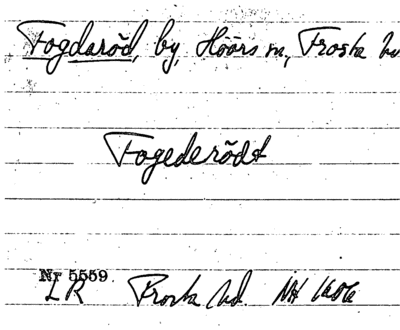 Fogdaröd, by, Höörs sn, Frosta hd
Fogederödt
Nr 5559
LR Frosta hd. NH 1606